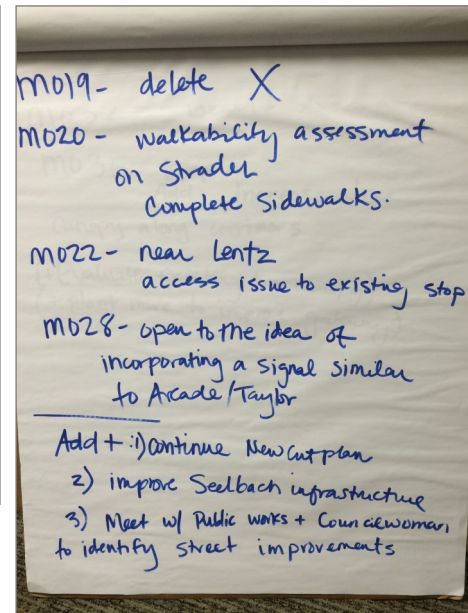 M019- delete X
M020 - walkability assessment
on Strader
Complete Sidewalks.
M022- near Lentz
access issue to existing stop
M028- open to the idea of
incorporating a signal similar
to Arcade/Taylor
Add + :1) Continue New Cut plan
2) improve Seelbach infrastructure
3) Meet w/ Public works + Councilwoman,
to identify street improvements